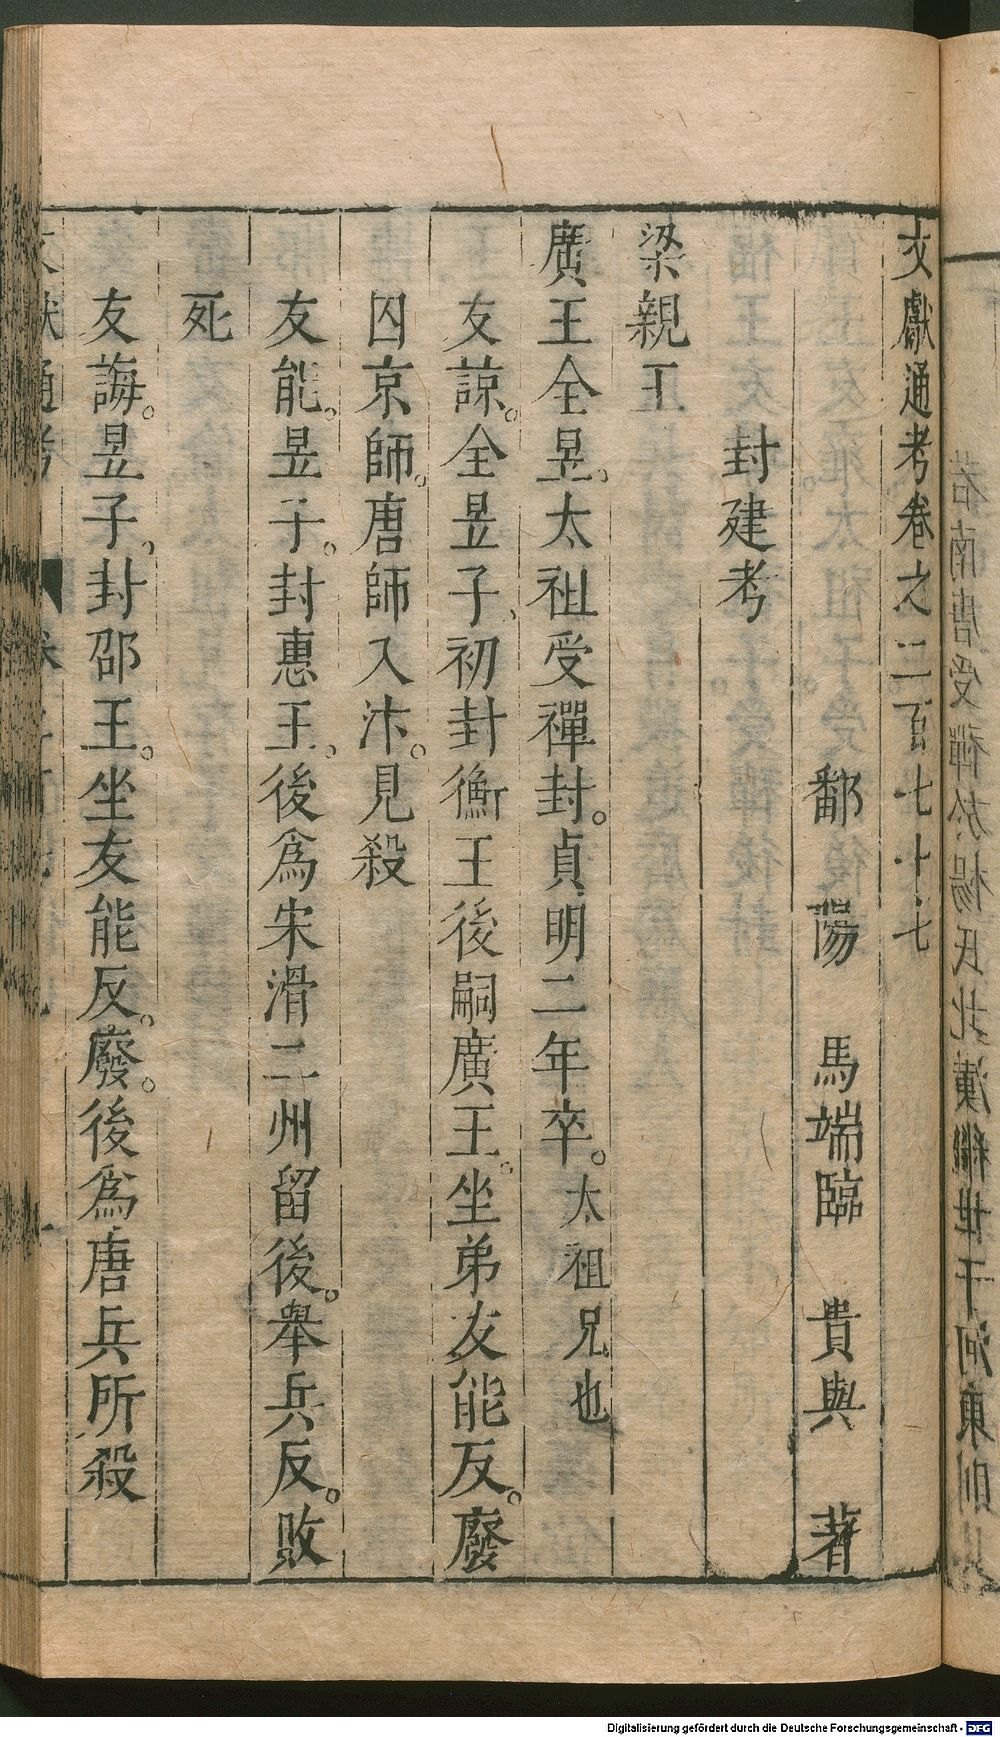 文獻通考卷之二百七十七
鄱陽 馬端臨 貴與 著
封建考
梁親王
廣王全昱。太祖受禪封。貞明二年卒。太祖兄也
友諒。全昱子、初封衡王後嗣廣王。坐弟友能反。廢
囚京師。唐師入汴。見殺
友能。昱子。封惠王。後爲宋滑二州留後。舉兵反。敗
死
友誨。昱子、封邵王。坐友能反。廢。後爲唐兵所殺
Digitalisierung gefördert durch die Deutsche Forschungsgemeinschaft - DFG